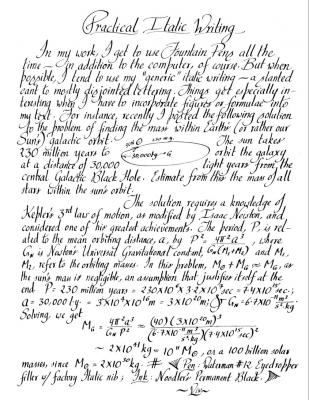 Practical Italic Writing
In my work, I get to use Fountain Pens all the
time — in addition to the computer, of course. But when
possible, I tend to use my "generic" italic writing — a slanted
cant to mostly disjointed lettering. Things get especially in-
teresting when I have to incorporate figures or formulae into
my text. For instance, recently I posted the following solution
to the problem of finding the mass within Earth's (or rather our
Sun's) galactic orbit. The sun takes
230 million years to orbit the galaxy
at a distance of 30,000 light years from the
central Galactic Black Hole. Estimate from this the mass of all
stars within the sun's orbit.
The solution requires a knowledge of
Kepler's 3rd law of motion, as modified by Isaac Newton, and
considered one of his greatest achievements. The period, P, is re-
lated to the mean orbiting distance, a, by P² = 4π²a³ / GN(M1+M2), where
GN is Newton's Universal Gravitational constant, and M1,
M2, refer to the orbiting masses. In this problem, M⊙ + MG ≈ MG, as
the sun's mass is negligible, an assumption that justifies itself at the
end. P = 230 million years = 230×10⁶ × 3.2×10⁷ sec = 7.4×10¹⁵ sec;
a = 30,000 l.y. = 3×10⁴ × 10¹⁶ m = 3×10²⁰ m; GN = 6.7×10⁻¹¹ m³/s²kg.
Solving, we get
MG = 4π²a³ / GN P² = (40)(3×10²⁰ m)³ / (6.7×10⁻¹¹ m³/s²kg)(7.4×10¹⁵ sec)²
~ 2×10⁴¹ kg = 10¹¹ M⊙, or a 100 billion solar
masses, since M⊙ = 2×10³⁰ kg. # Pen: Waterman #12 Eyedropper
filler w/ factory Italic nib; Ink: Noodler's Permanent Black.